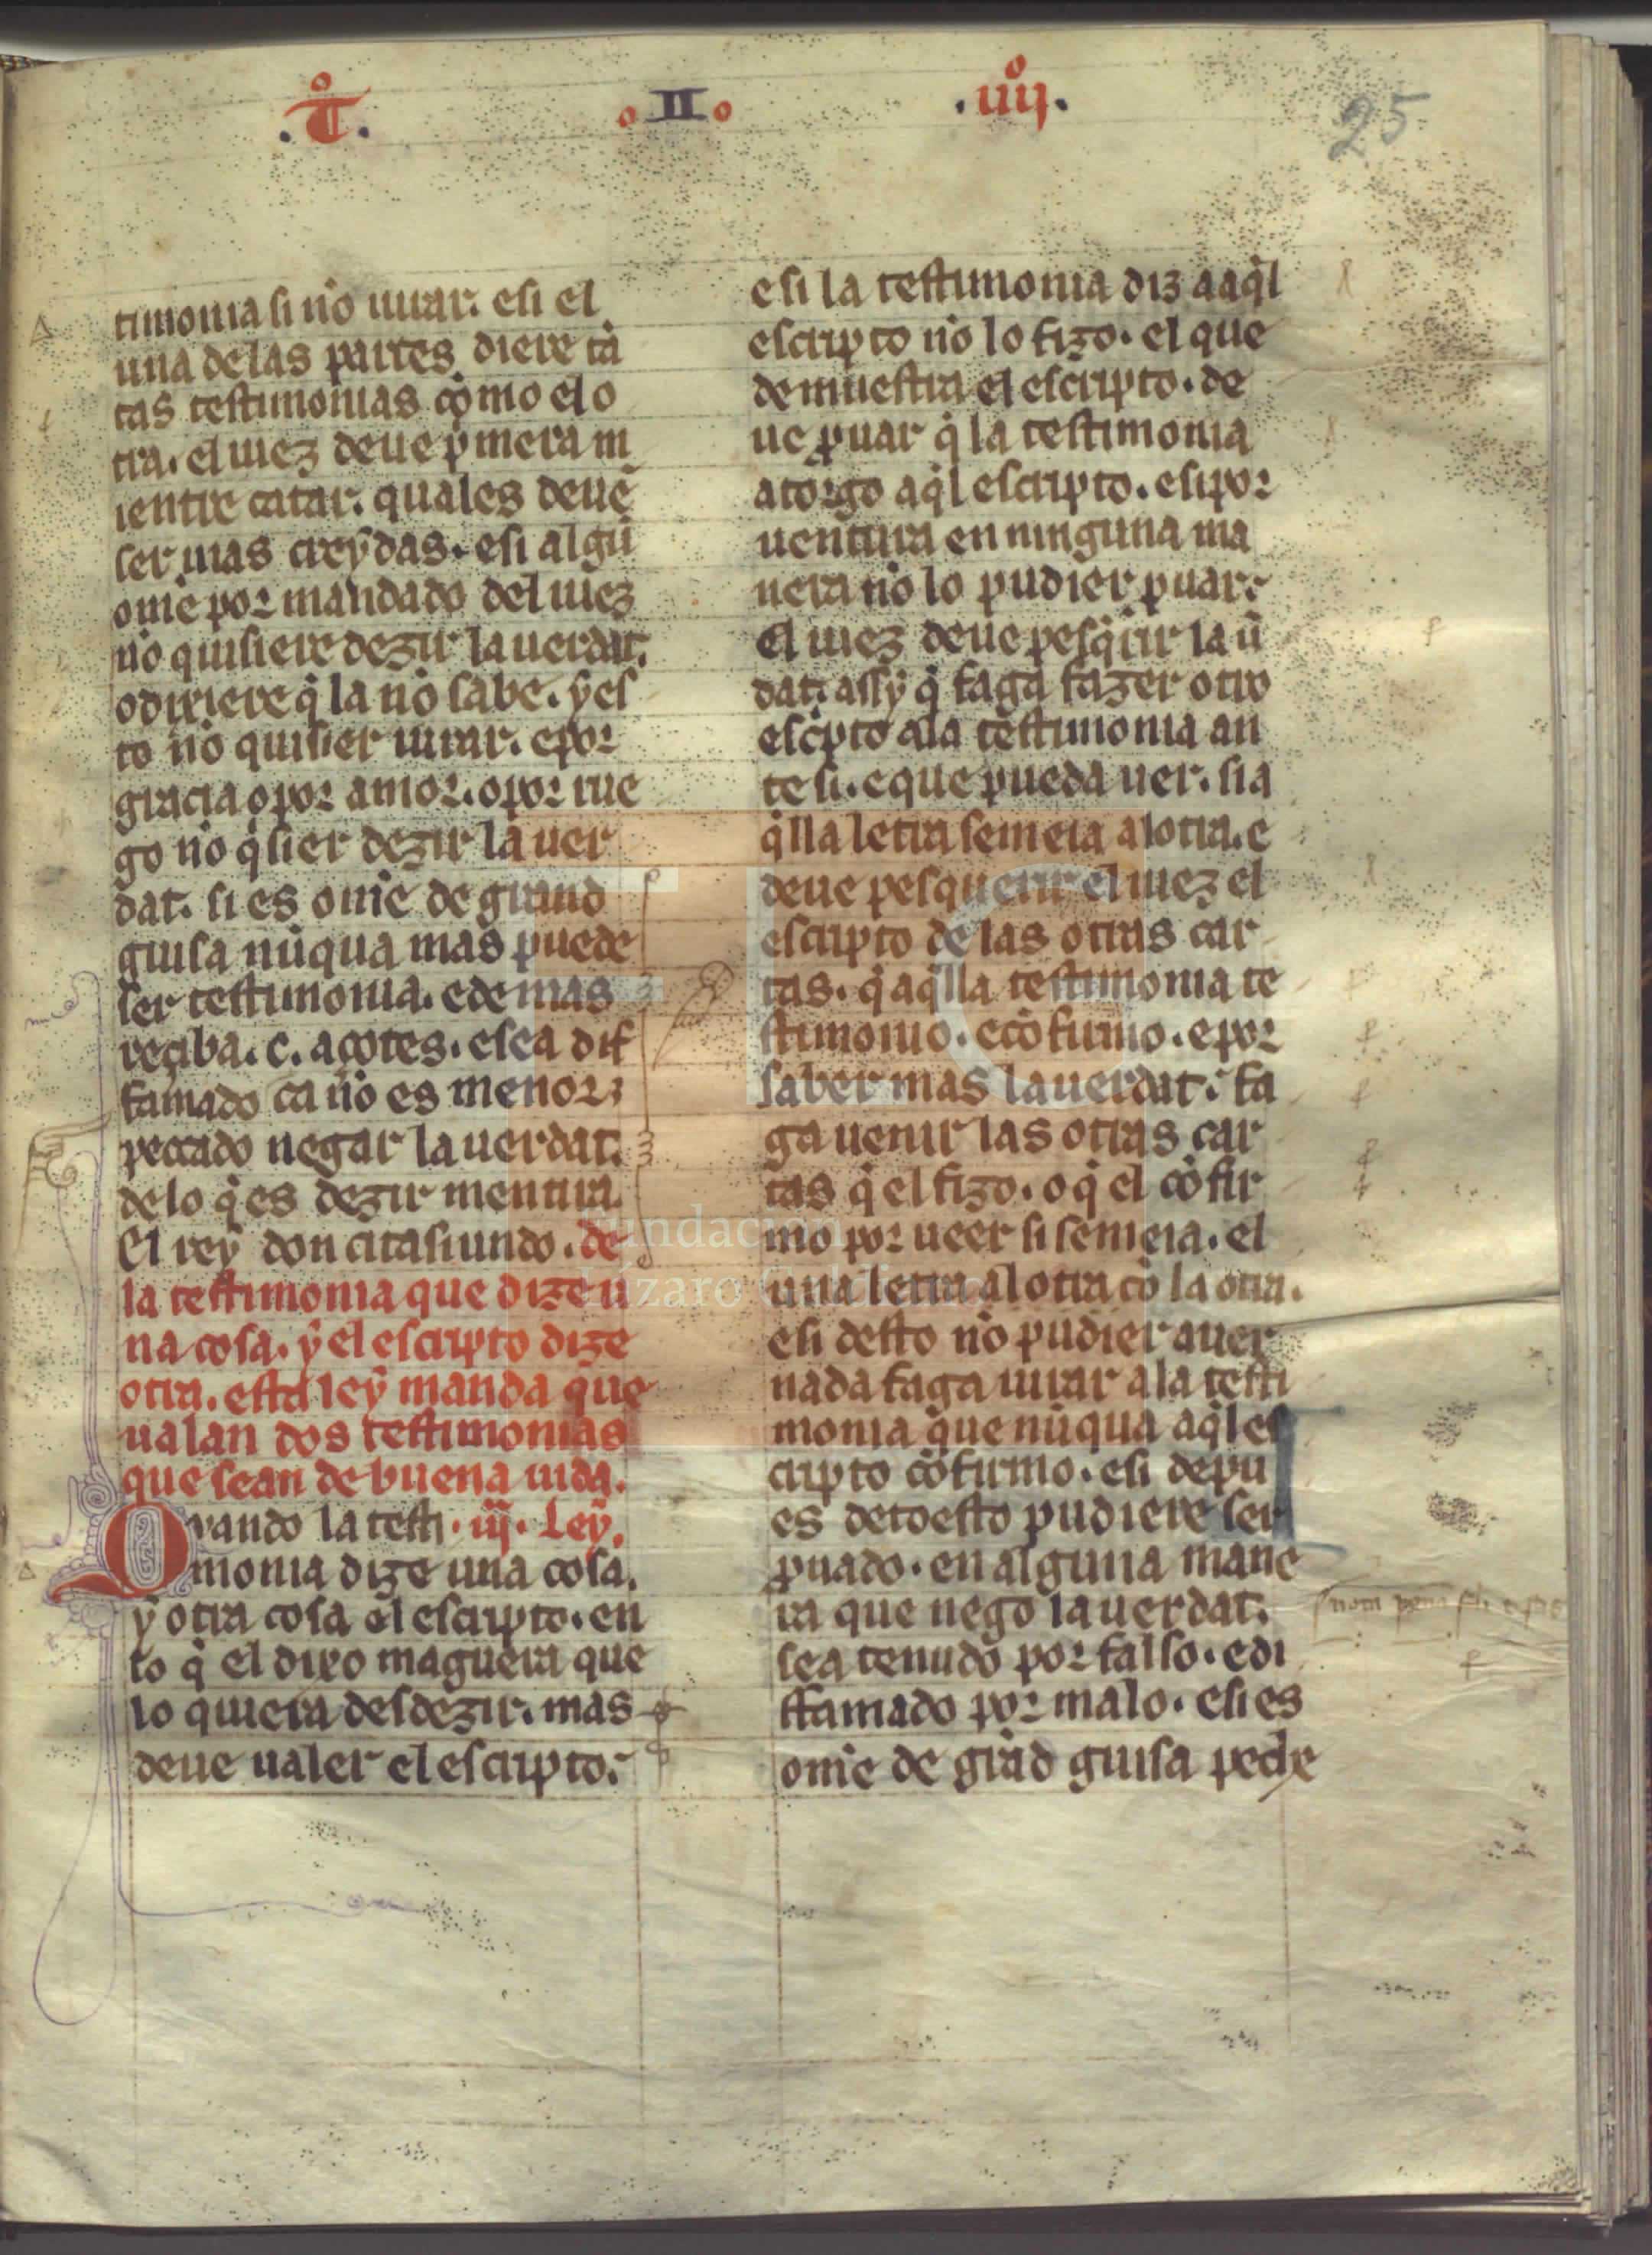 .T̊. .II. .iiij̊.
25
timonia si nõ iurar. e si el
una delas partes diere tã
tas testimonias cõmo el o
tra. el iuez deue p̱mera m
ientre catar. quales deuẽ
ser mas creẏdas. e si algũ
om̃e por mandado del iuez
nõ quisiere dezir la uerdat.
o dixiere q̃ la nõ sabe. ẏ es
to nõ quisier iurar. e por
gracia o por amor. o por rue
go nõ q̃sier dezir la uer
dat. si es om̃e de grand
guisa nũqua mas puede
ser testimonia. e demas
reçiba .c. açotes. e sea dif
famado ca nõ es menor
peccado negar la uerdat.
de lo q̃ es dezir mentira.
El reẏ don citasiundo. de
la testimonia que dize u
na cosa. ẏ el escripto dize
otra. esta leẏ manda que
ualan dos testimonias
que sean de buena uida.
Qvando la testi .iij. Leẏ.
monia dize una cosa.
ẏ otra cosa el escripto. en
to q̃ el dixo maguera que
lo quiera desdezir. mas
deue ualer el escripto.
e si la testimonia diz a aq̃l
escripto nõ lo fizo. el que
demuestra el escripto. de
ue ꝓuar q̃ la testimonia
atorgo aq̃l escripto. e si por
uentura en ninguna ma
nera nõ lo pudier ꝓuar.
El iuez deue pesq̃rir la ũ
dat. assẏ q̃ faga fazer otro
esc̃pto ala testimonia an
te si. e que pueda uer. si a
q̃lla letra semeia alotra. e
deue pesquerir el iuez el
escripto de las otras car
tas. q̃ aq̃lla testimonia te
stimonio. e cõfirmo. e por
saber mas la uerdat. fa
ga uenir las otras car
tas q̃ el fizo. o q̃ el cõfir
mo por ueer si semeia. el
una letra al otra cõ la otra.
e si desto nõ pudier auer
nada faga iurar a la testi
monia que nũqua aq̃l es
cripto cõfirmo. e si depu
es detoesto pudiere ser
ꝓuado. en alguna mane
ra que nego la uerdat.
sea tenudo por falso. e di
ffamado por malo. e si es
om̃e de grãd guisa peche
Fundación
Lázaro Galdiano